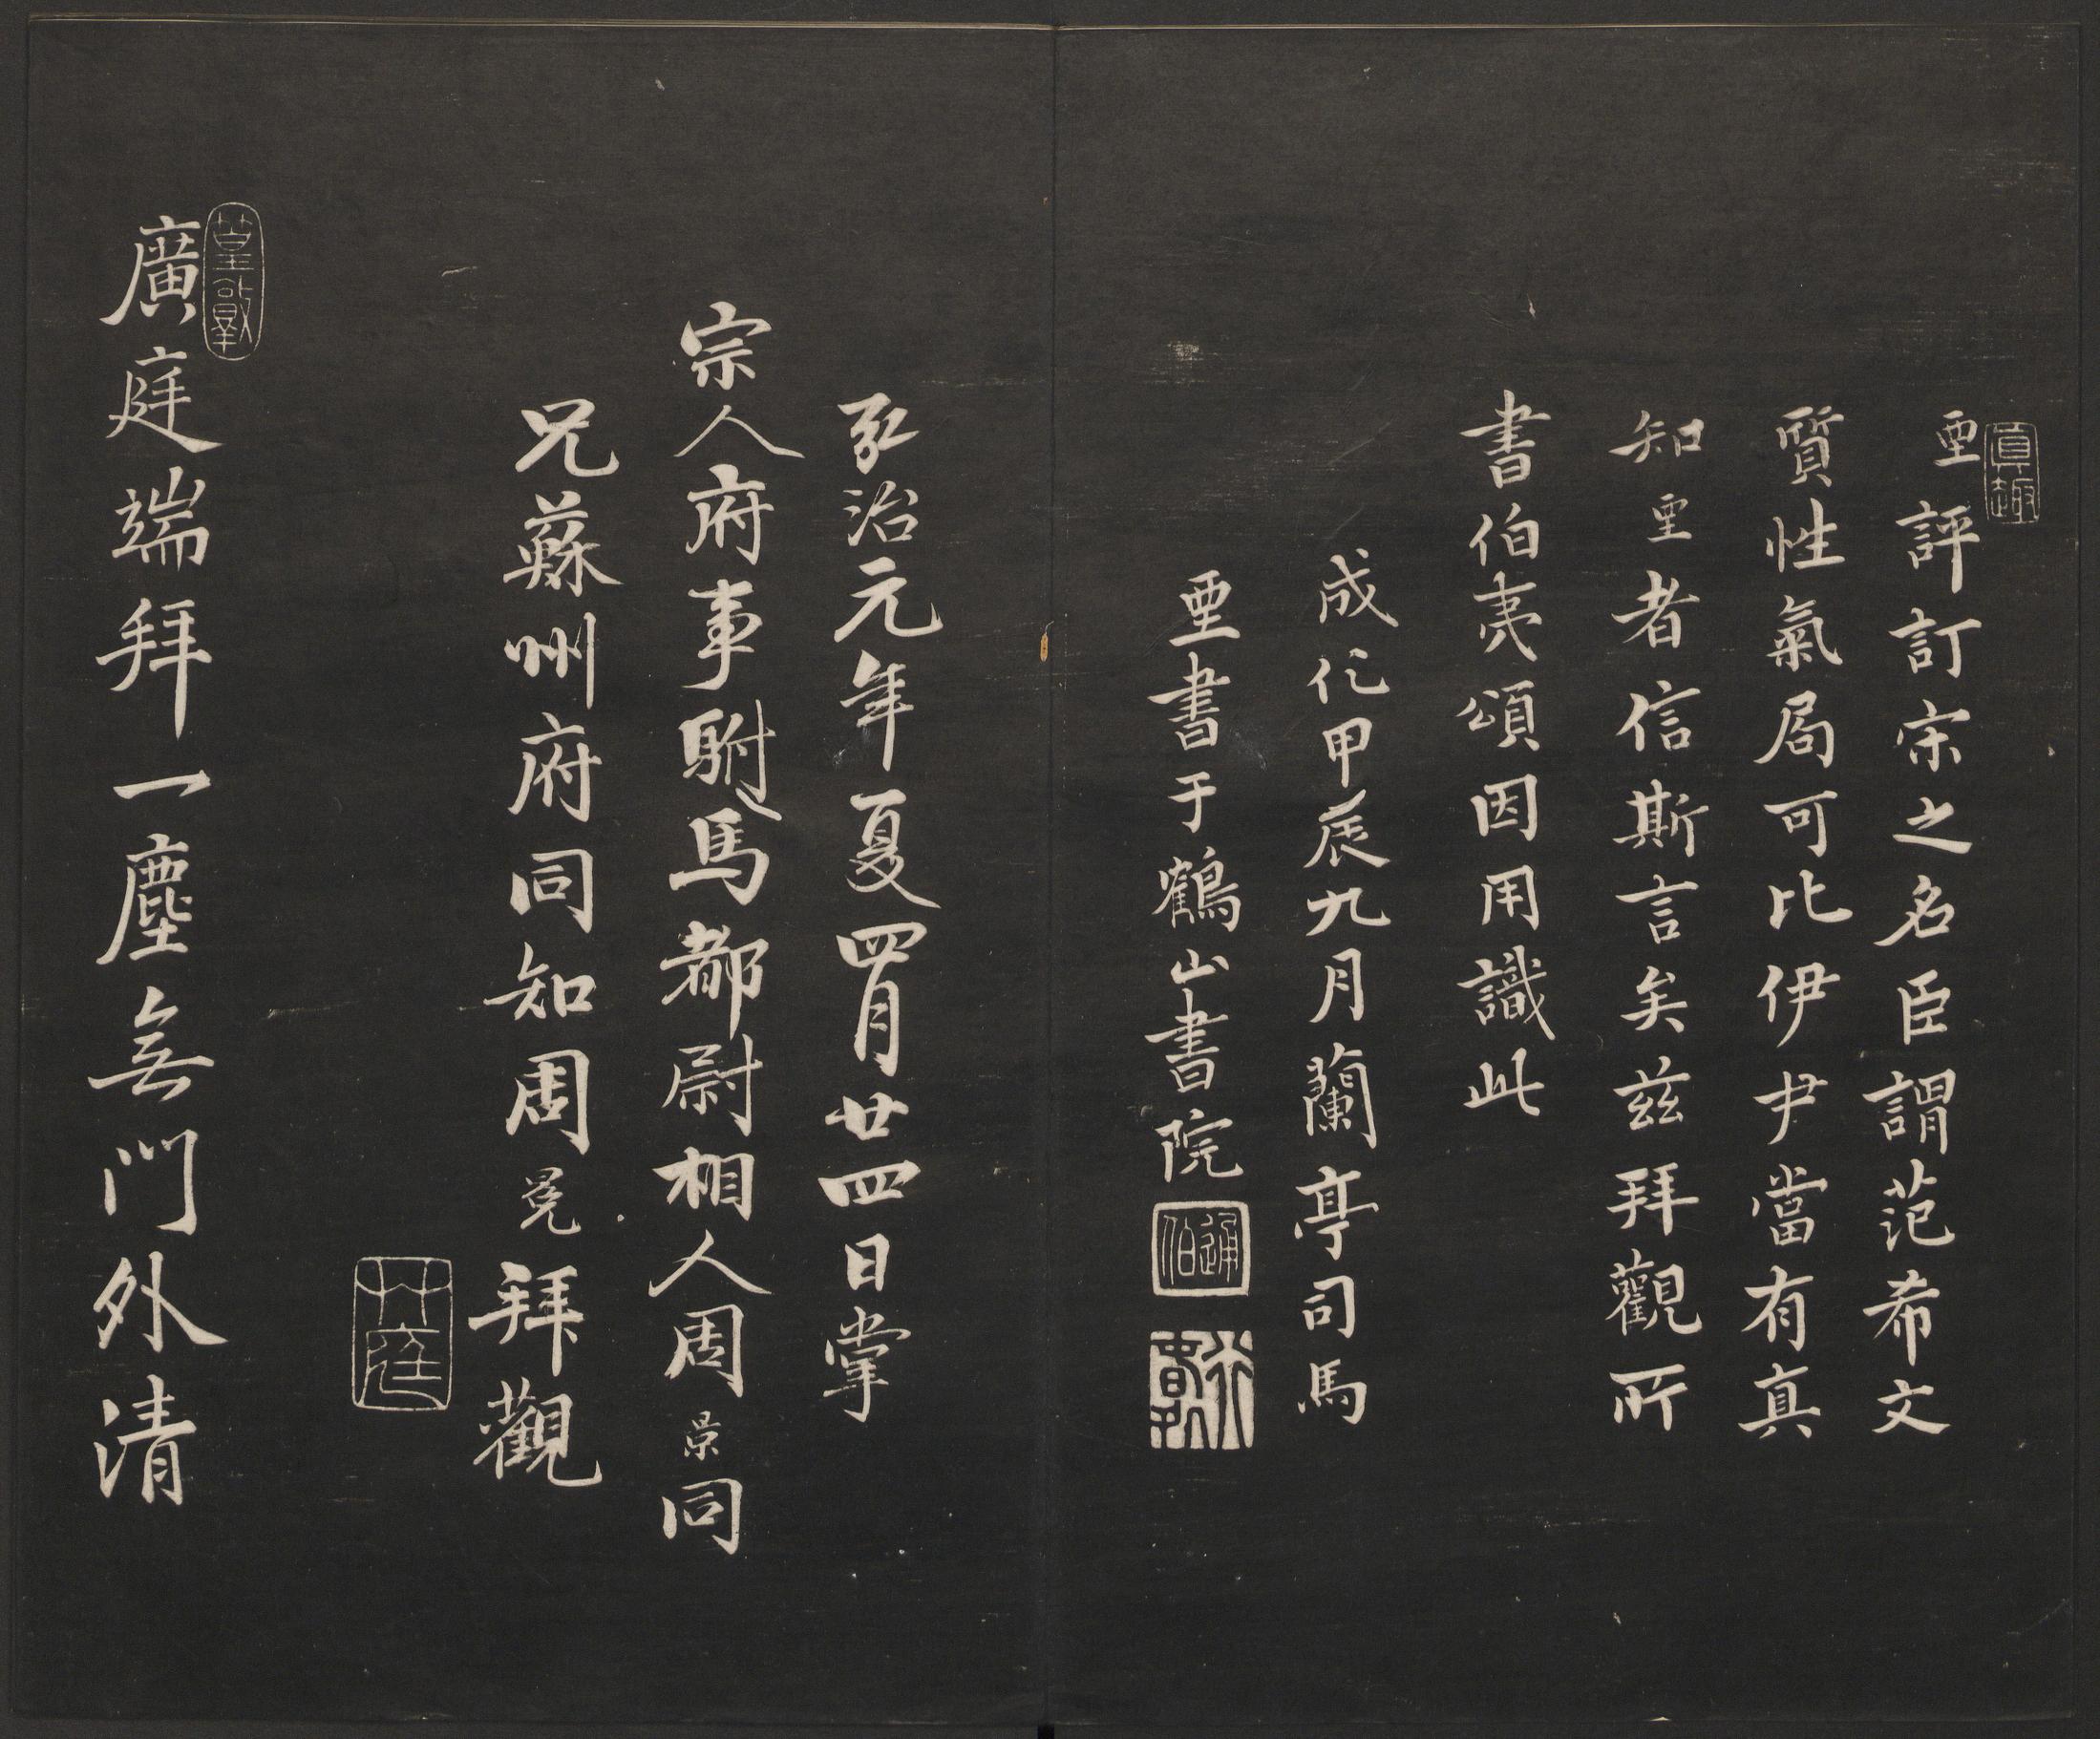 真趣
垔評訂宋之名臣謂范希文
質性氣局可比伊尹當有真
知垔者信斯言矣兹拜觀所
書伯夷頌因用識此
成化甲辰九月蘭亭司馬
垔書于鶴山書院
通伯
弘治元年夏四月廿四日掌
宗人府事駙馬都尉相人周景同
兄蘇州府同知周冕拜觀
廣庭端拜一塵無門外清